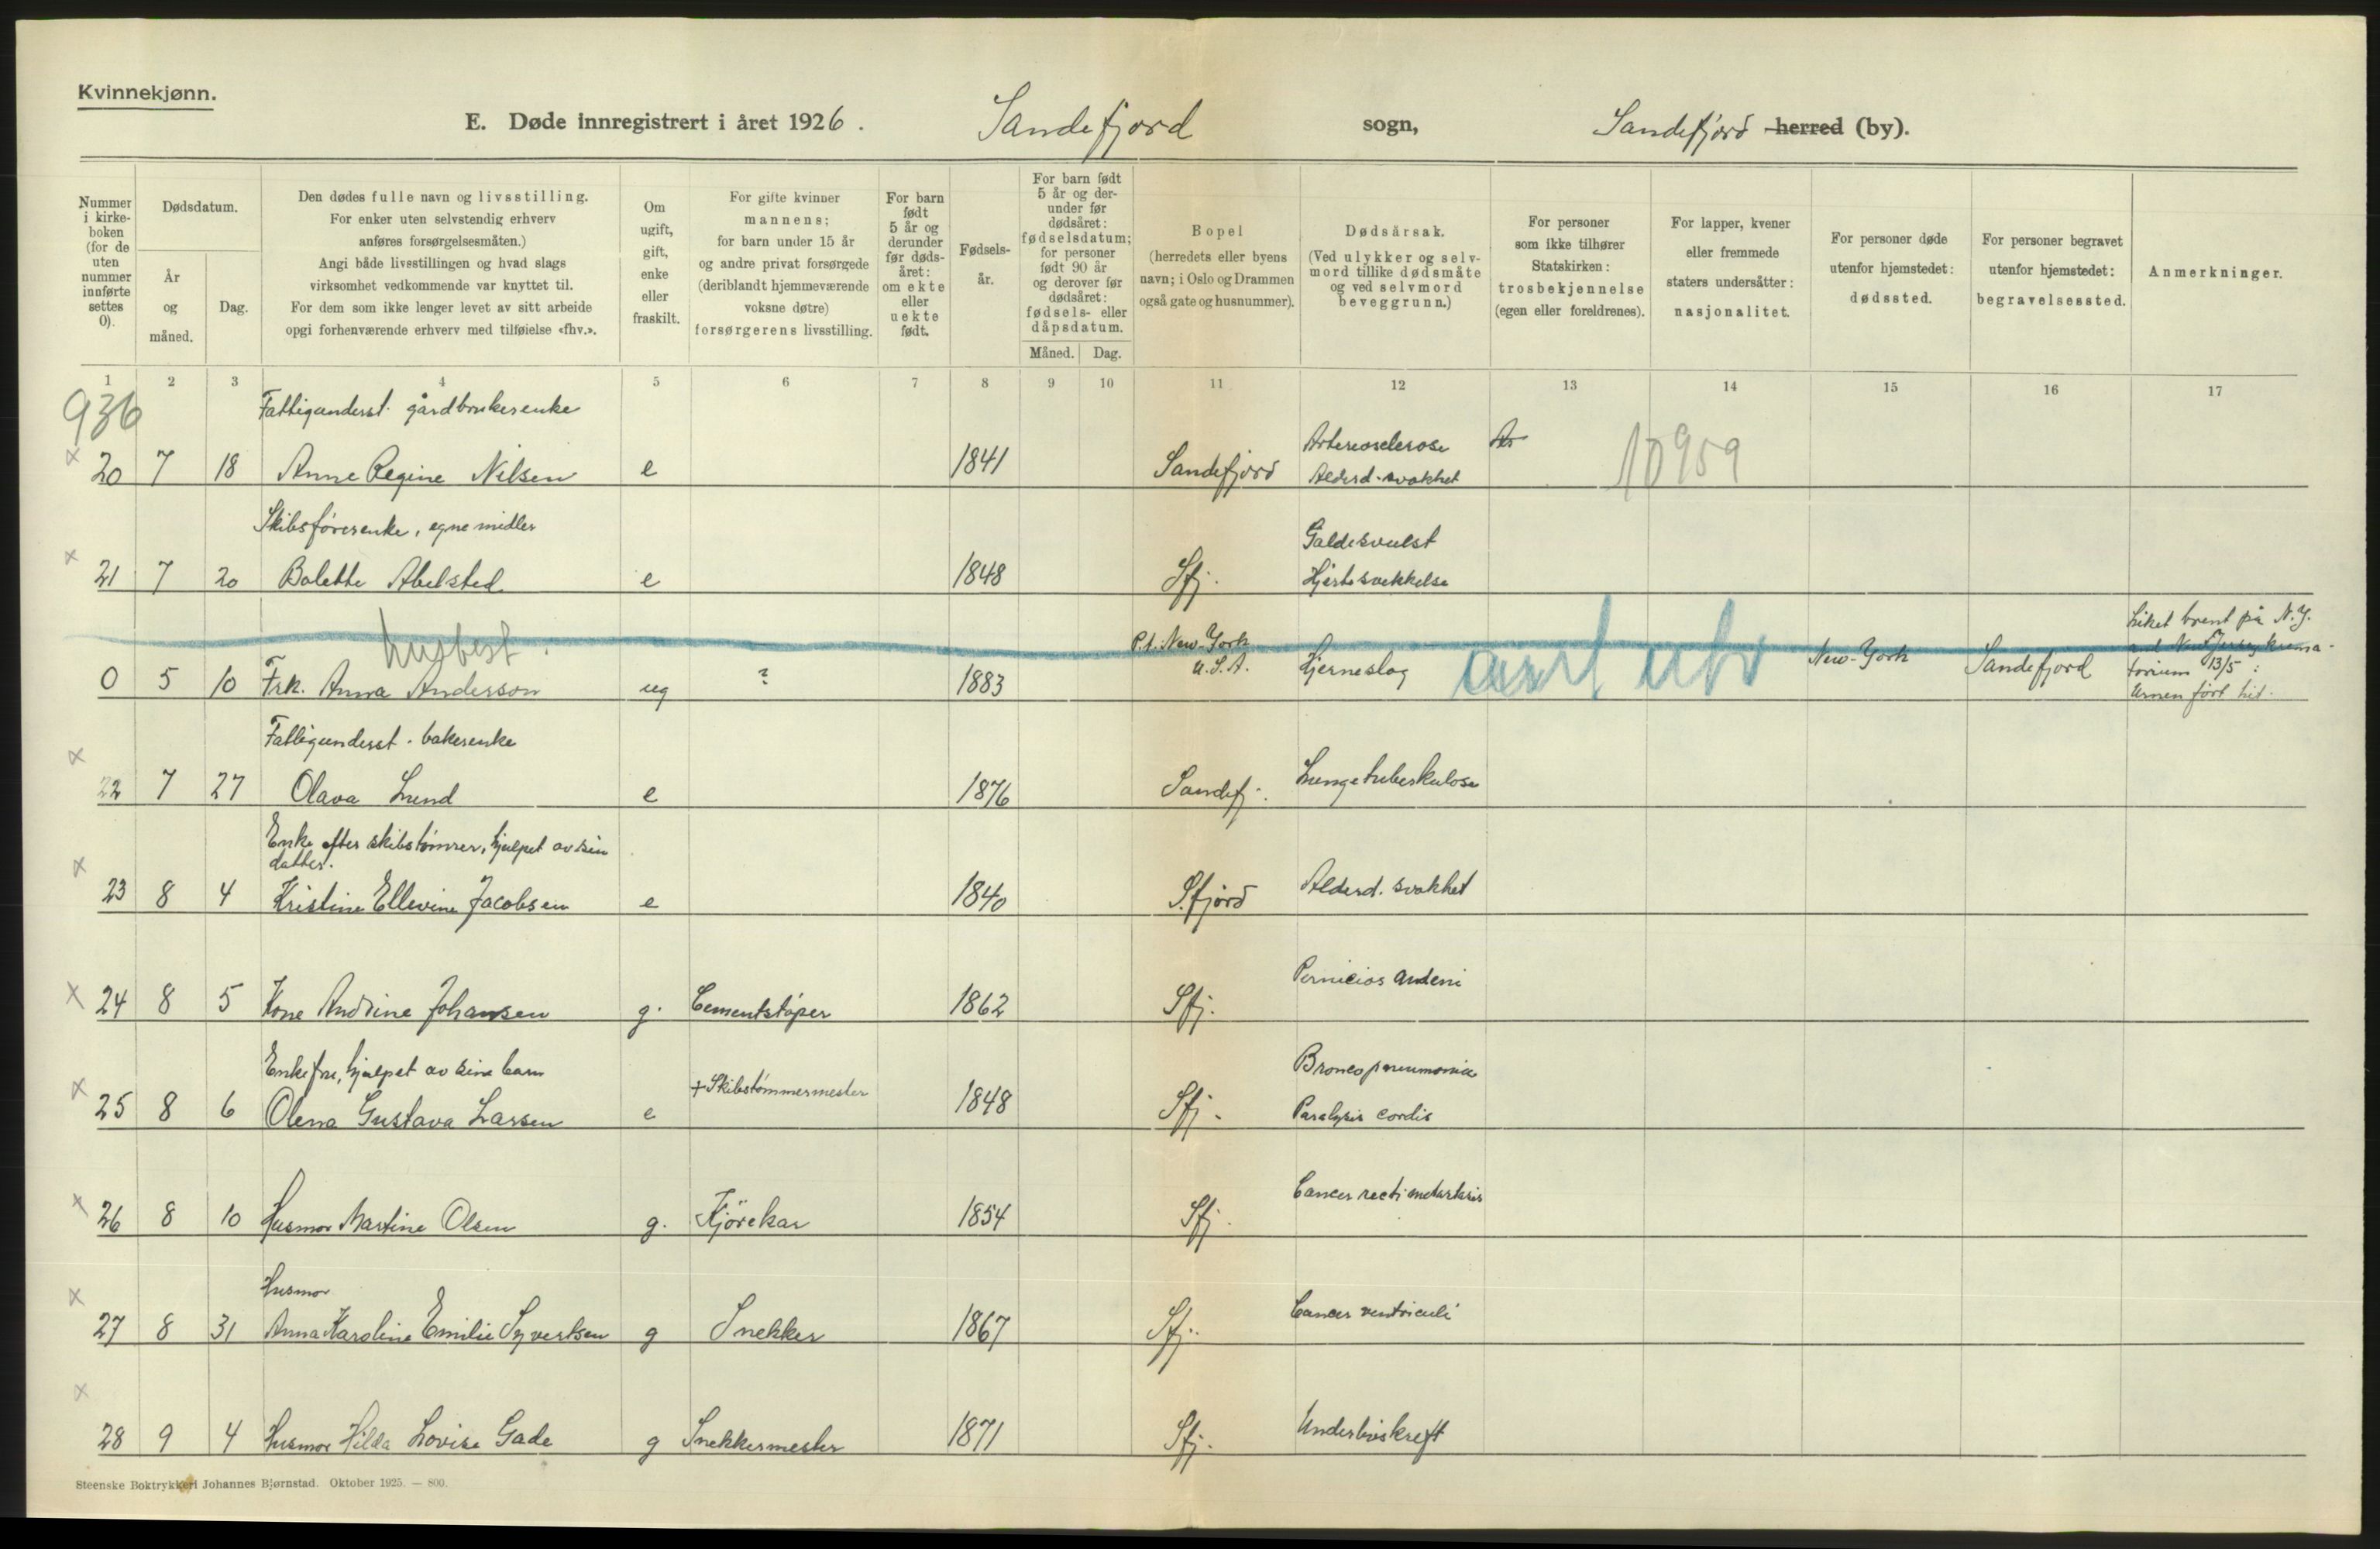 Kvinnekjønn.
E. Døde innregistrert i året 1926. Sandefjord sogn, Sandefjord herred (by).
Nummer i kirkeboken (for de uten nummer innførte settes 0).
Dødsdatum.
År og måned.
Dag.
Den dødes fulle navn og livsstilling.
For enker uten selvstendig erhverv
anføres forsørgelsesmåten.)
Angi både livsstillingen og hvad slags
virksomhet vedkommende var knyttet til.
For dem som ikke lenger levet av sitt arbeide
opgi forhenværende erhverv med tilføielse «fhv.».
Om ugift, gift, enke eller fraskilt.
For gifte kvinner
mannens;
for barn under 15 år
og andre privat forsørgede
(deriblandt hjemmeværende
voksne døtre)
forsørgerens livsstilling.
For barn født 5 år og derunder før dødsåret: om ekte eller uekte født.
Fødselsår.
For barn født 5 år og derunder før dødsåret: fødselsdatum; for personer født 90 år og derover før dødsåret: fødsels- eller dåpsdatum.
Måned. Dag.
Bopel
(herredets eller byens
navn; i Oslo og Drammen
også gate og husnummer).
Dødsårsak.
(Ved ulykker og selvmord tillike dødsmåte
og ved selvmord
beveggrunn.)
For personer
som ikke tilhører
Statskirken:
trosbekjennelse
(egen eller foreldrenes).
For lapper, kvener
eller fremmede
staters undersåtter:
nasjonalitet.
For personer døde
utenfor hjemstedet:
dødssted.
For personer begravet
utenfor hjemstedet:
begravelsessted.
Anmerkninger.
1 2 3 4 5 6 7 8 9 10 11 12 13 14 15 16 17
936
Fattigunderst. gårdbrukerenke
20 7 18 Anne Regine Nilsen e 1841 Sandefjord Arteriosclerose Alderd. svakhet 10959
Skibsførerenke, egne midler
21 7 20 Bolette Abelsted e 1848 Sfj. Galdesvulst Hjertesvekkelse
husbest.
0 5 10 Frk. Anna Anderson ug ? 1883 P.t. New-York U.S.A. Hjerneslag New-York Sandefjord Liket brent på N.Y. and New Jersey krematorium 13/5: Urnen ført hit.
Fattigunderst. bakerenke
22 7 27 Olava Lund e 1876 Sandefj. Lungetuberkulose
Enke efter skibstømrer, hjelpet av sin
datter.
23 8 4 Kristine Ellevine Jacobsen e 1840 S.fjord Alderd. svakhet
24 8 5 Kone Andrine Johansen g. Cementstøper 1862 Sfj. Pernicios
Enkefru, hjelpet av sine barn
25 8 6 Olena Gustava Larsen e + Skibstømmermester 1848 Sfj. Broncopneumonia Paralysis cordis
26 8 10 Husmor Martine Olsen g. Kjørekar 1854 Sfj. Cancer recti metastasis
Husmor
27 8 31 Anna Karoline Emilie Syvertsen g Snekker 1867 Sfj. Cancer ventriculi
28 9 4 Husmor Hilda Lovise Gade g Snekkermester 1871 Sfj. Underlivskreft
Steenske Boktrykkeri Johannes Bjørnstad. Oktober 1925. — 800.